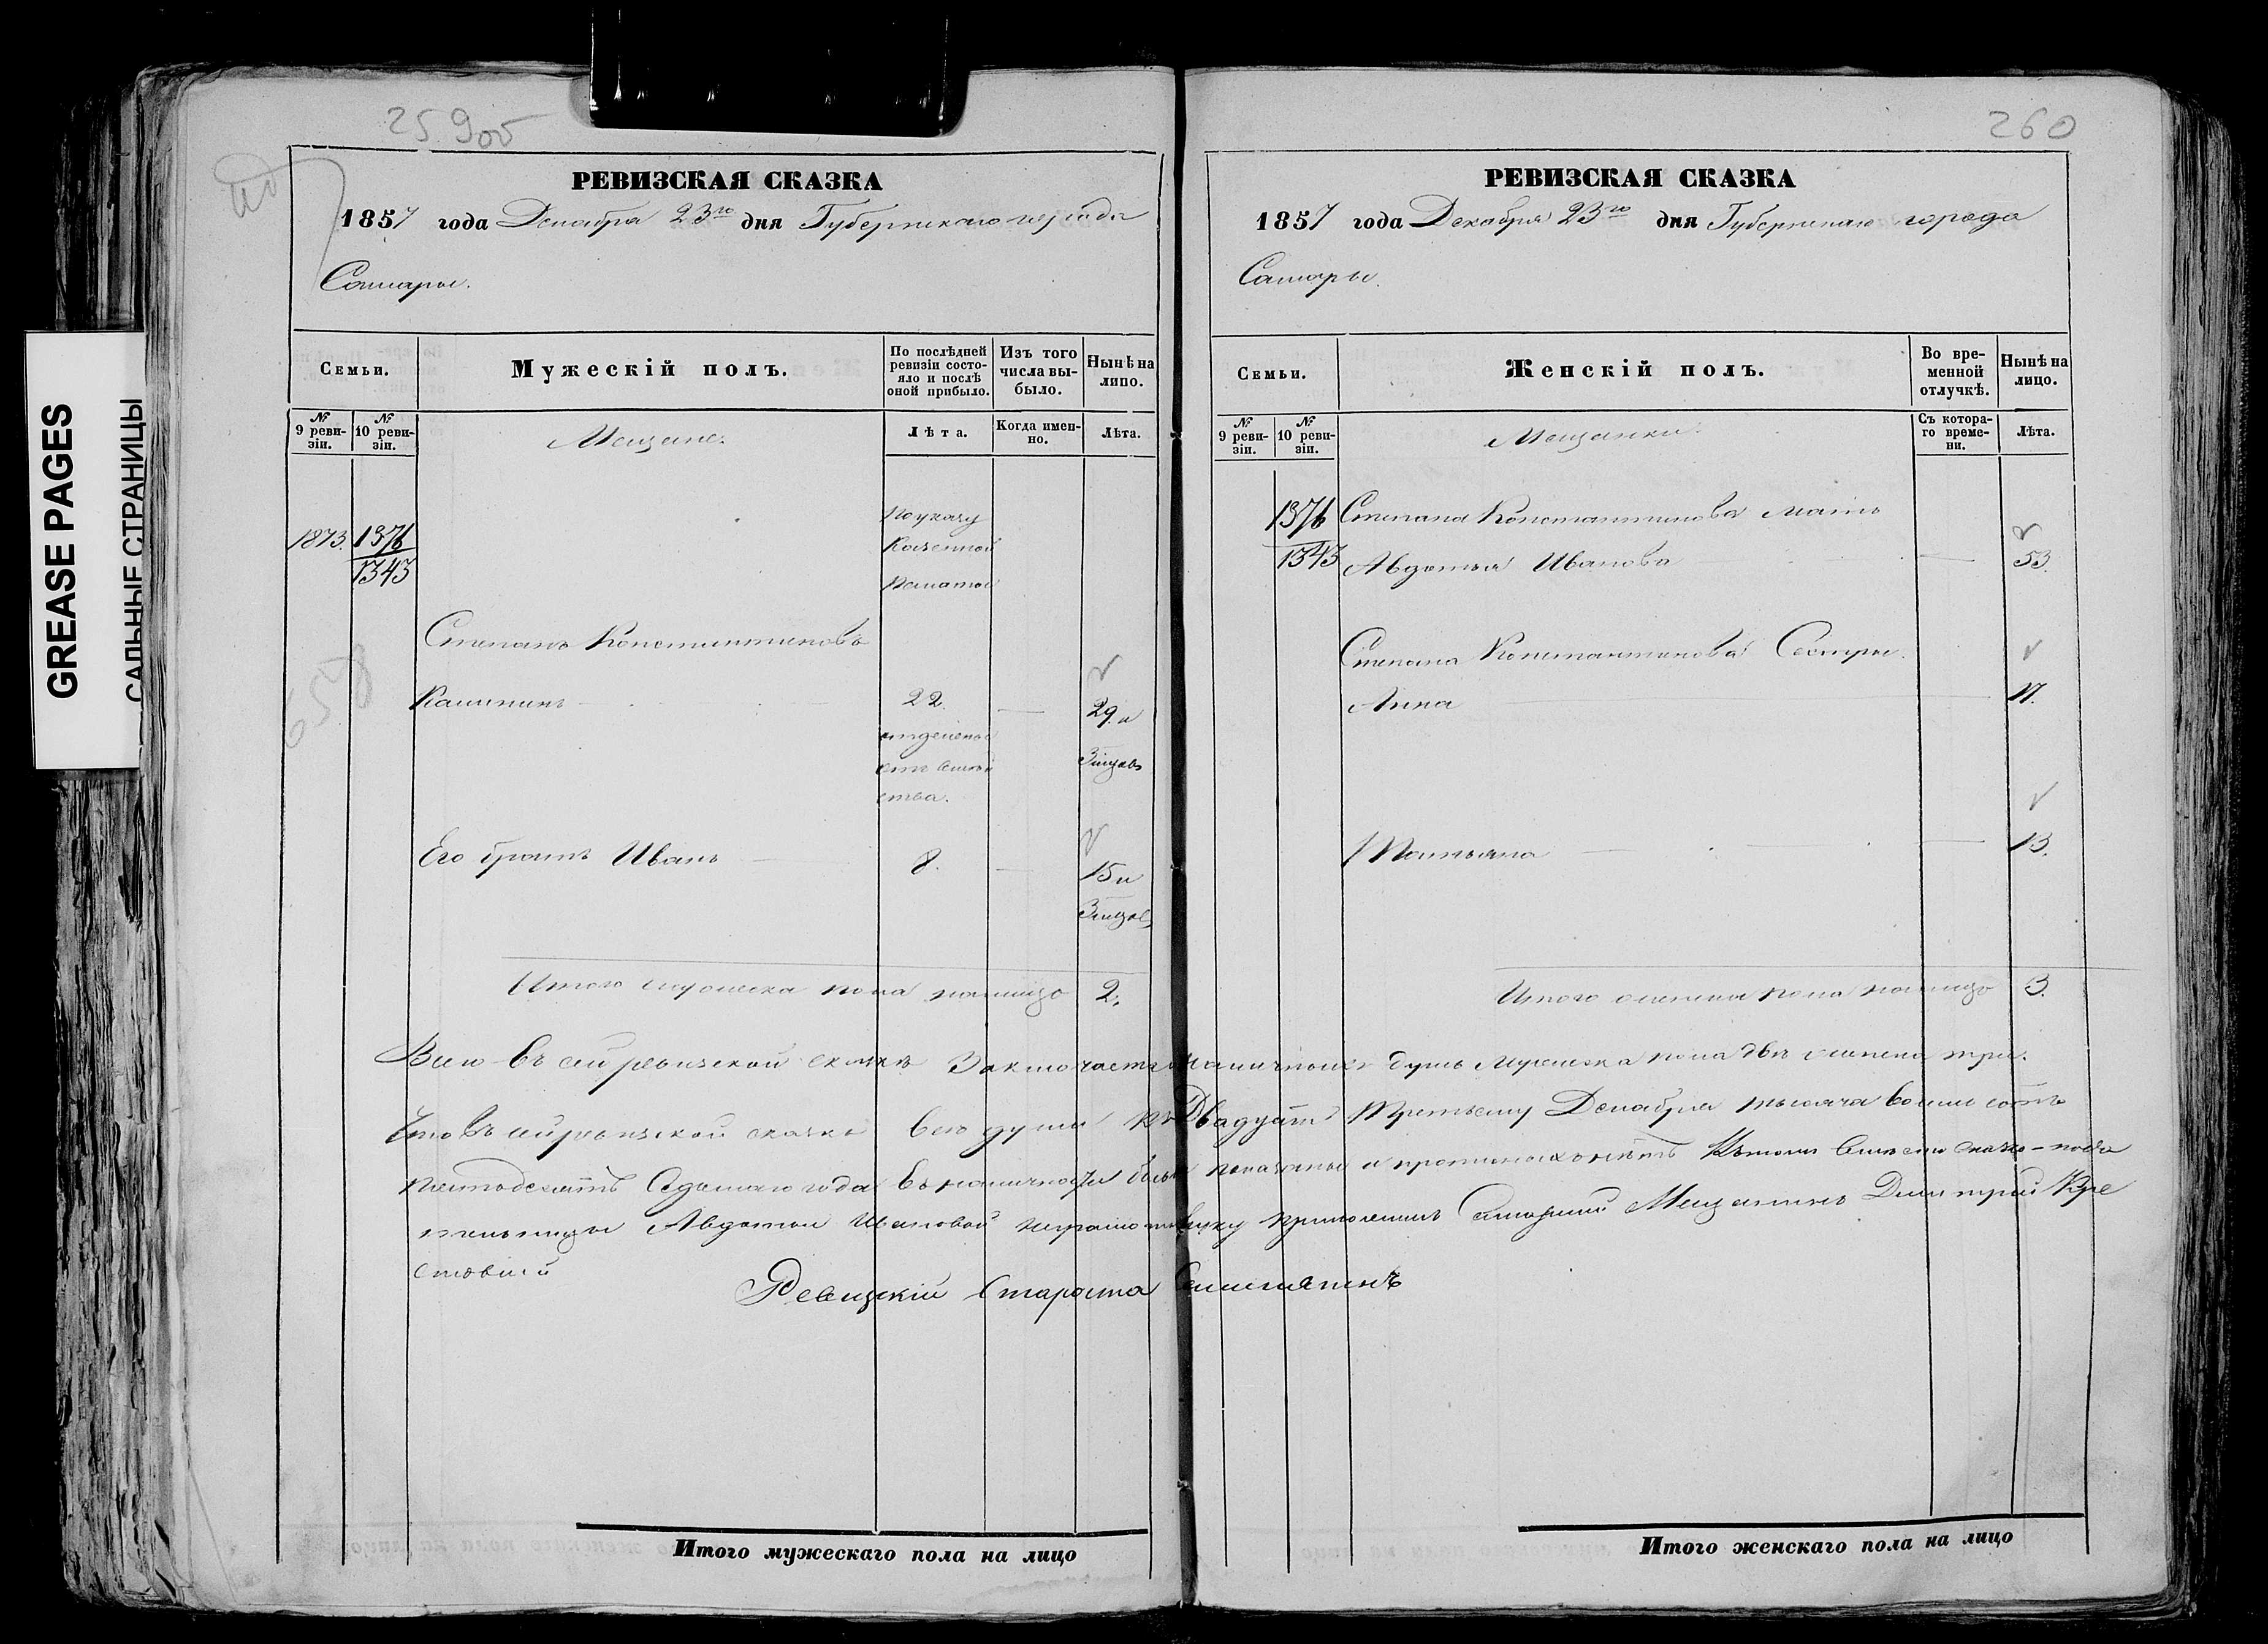 GREASE PAGES
САЛЬНЫЕ СТРАНИЦЫ
259 об
РЕВИЗСКАЯ СКАЗКА
1857 года Декабря 23го дня Губернскаго города
Самары.
Семьи.
Мужескій полъ.
По послѣдней ревизіи состояло и послѣ оной прибыло.
Изъ того числа выбыло.
Нынѣ на лицо.
№ 9 ревизіи.
№ 10 ревизіи.
Мещане.
Лѣта.
Когда именно.
Лѣта.
1873. 1376
1343
по указу
Казенной
Палаты
658
Степанъ Константиновъ
Калининъ 22. 29. и
отделены
3 мѣсяц
ства.
Его братъ Иванъ 8. 15 и
3 мѣсяц
Итого мужеска пола налицо 2.
260
РЕВИЗСКАЯ СКАЗКА
1857 года Декабря 23го дня Губернскаго города
Самары.
Семьи.
Женскій полъ.
Во временной отлучкѣ.
Нынѣ на лицо.
№ 9 ревизіи.
№ 10 ревизіи.
Мещанки.
Съ котораго времени.
Лѣта.
1376 Степана Константинова мать
1343 Авдотья Иванова 53.
Степана Константинова Сестры
Анна 17.
Татьяна 13.
Итого женска пола налицо 3.
Всего въ сей ревизской сказкѣ Заключается наличныхъ душъ Мужеска пола двѣ женска три.
Что въ сей ревизской сказке все души къ Двадцать Третьему Декабря тысяча восемь сотъ
пятьдесятъ Седьмаго года въ наличности были показаны и прописныхъ нѣтъ
Авдотьи Ивановой руку приложилъ Самарский Мещанинъ Дмитрий Кре
стовский
Ревизскій Староста
Итого мужескаго пола на лицо
Итого женскаго пола на лицо